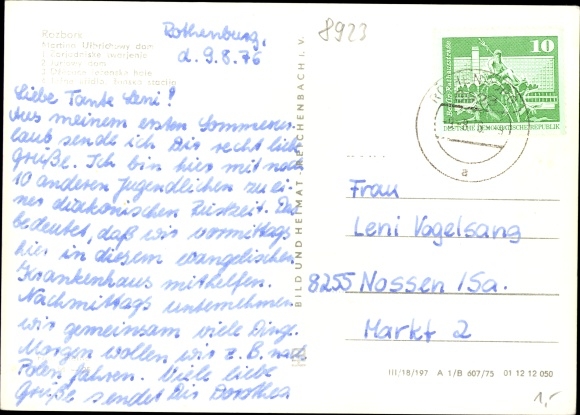 Rothenburg,
d. 9.8.76
8923
Rozbors
Martina Ulbrichowy dom
Liebe Tante Leni!
Aus meinem ersten Sommerur-
laub sende ich Dir recht liebe
Grüße. Ich bin hier mit noch
10 anderen Jugendlichen zu ei-
ner diakonischen Rüstzeit. Das
bedeutet, daß wir vormittags
hier in diesem evangelischen
Krankenhaus mithelfen.
Nachmittags unternehmen
wir gemeinsam viele Dinge.
Morgen wollen wir z.B. nach
Polen fahren. Viele liebe
Grüße sendet Dir Dorothea
BILD UND HEIMAT REICHENBACH i. V.
10
DEUTSCHE DEMOKRATISCHE REPUBLIK
a
Frau
Leni Vogelsang
8255 Nossen /Sa.
Markt 2
III/18/197 A 1/B 607/75 01 12 12 050
1,-